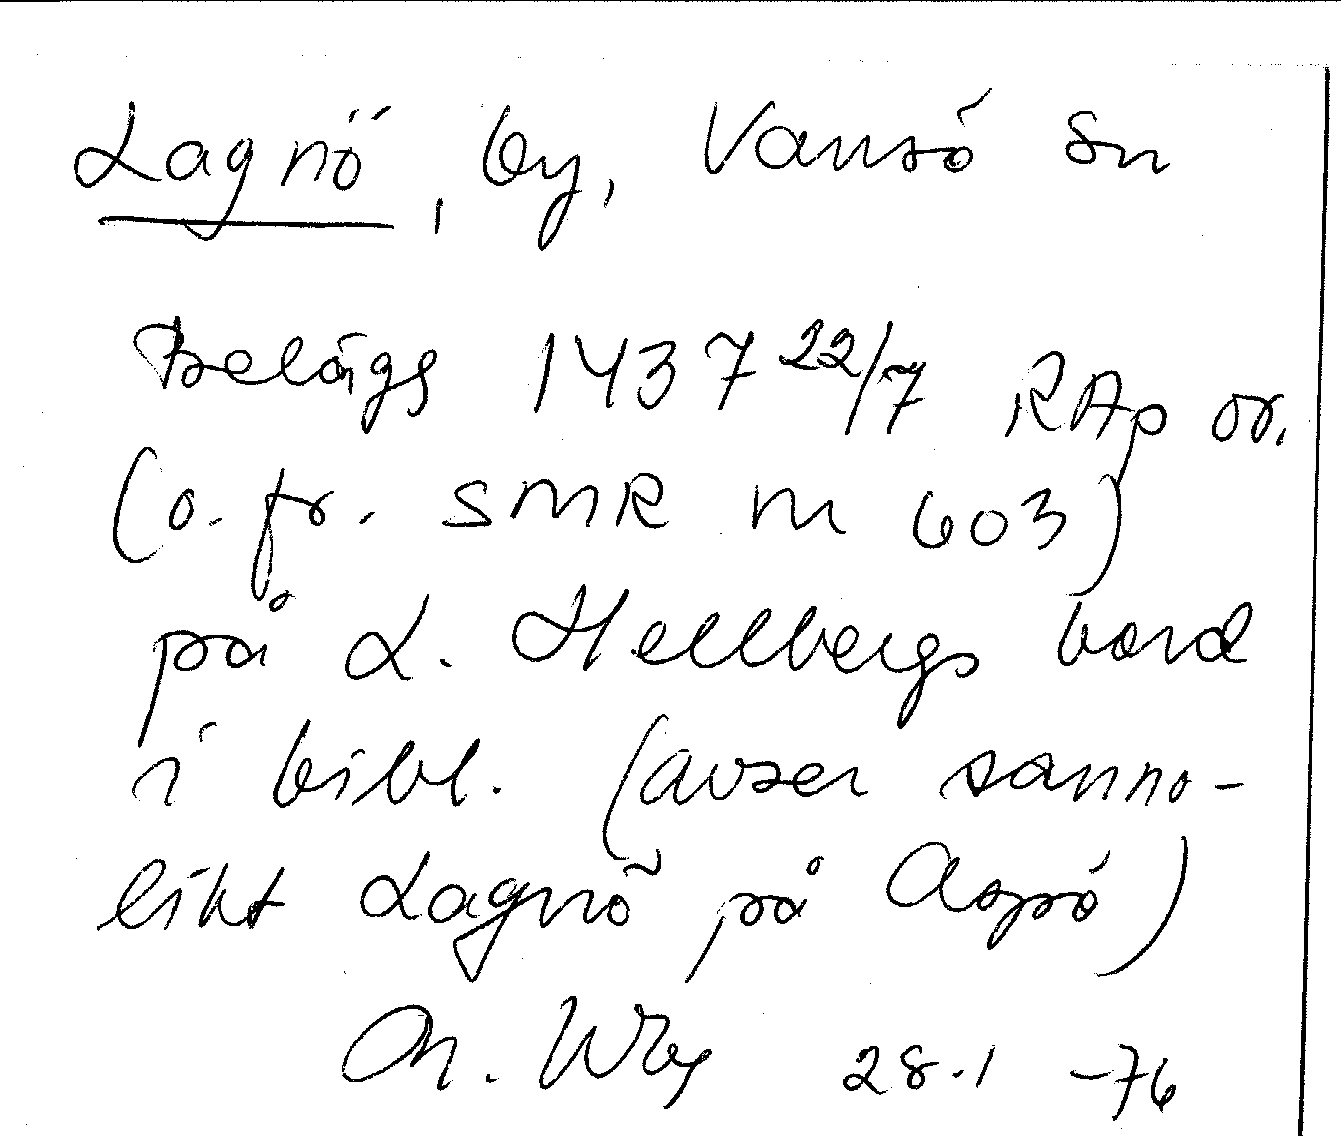 Lagnö, by, Vansö sn
Belägg 1437 22/7 RAp or.
(o. fr. SMR nr 603)
på L. Hellbergs bord
i bibl. (avser sanno-
likt Lagnö på Aspö)
28.1 -76